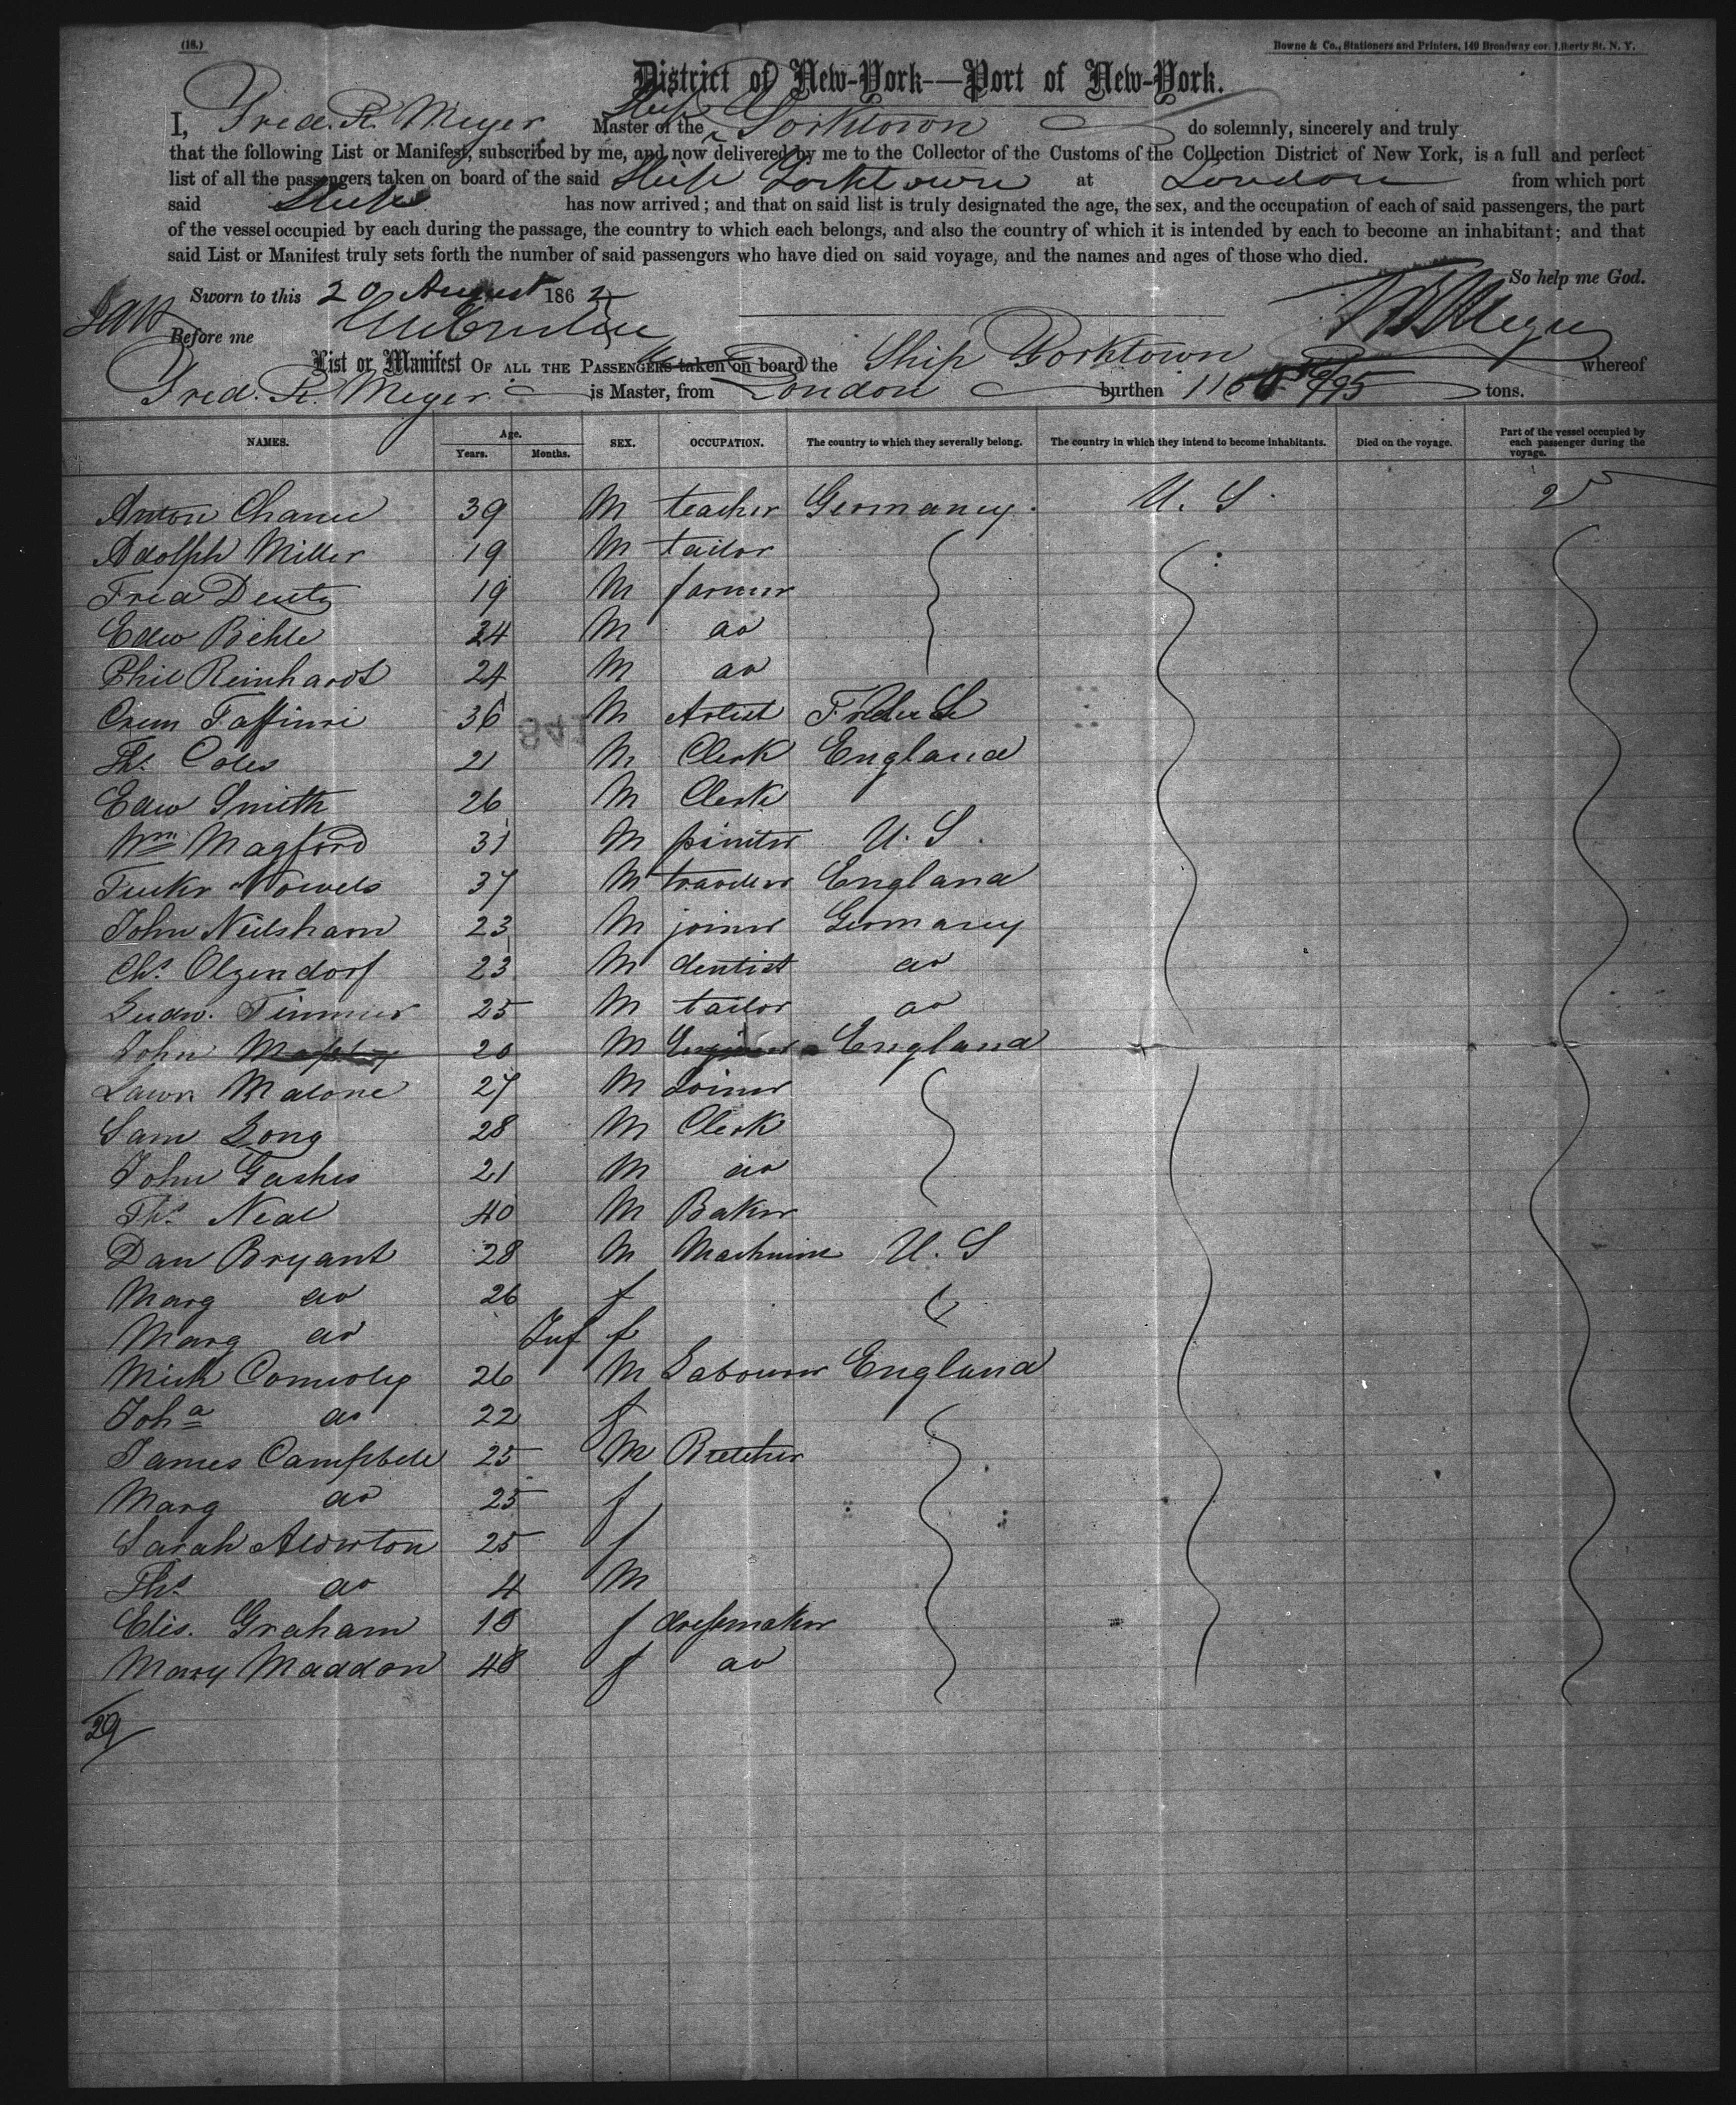 (18.)
Bowne & Co., Stationers and Printers, 149 Broadway cor. Liberty St. N. Y.
District of New-York—Port of New-York.
I, Fred. R. Meyer Master of the Ship Yorktown do solemnly, sincerely and truly
that the following List or Manifest, subscribed by me, and now delivered by me to the Collector of the Customs of the Collection District of New York, is a full and perfect
list of all the passengers taken on board of the said Ship Yorktown at London from which port
said Ship has now arrived; and that on said list is truly designated the age, the sex, and the occupation of each of said passengers, the part
of the vessel occupied by each during the passage, the country to which each belongs, and also the country of which it is intended by each to become an inhabitant; and that
said List or Manifest truly sets forth the number of said passengers who have died on said voyage, and the names and ages of those who died.
So help me God.
Sworn to this 20 August 1862
Before me
List or Manifest OF ALL THE PASSENGERS taken on board the Ship Yorktown whereof
Fred. R. Meyer is Master, from London burthen tons.
NAMES. Age. Years. Months. SEX. OCCUPATION. The country to which they severally belong. The country in which they intend to become inhabitants. Died on the voyage. Part of the vessel occupied by each passenger during the voyage.
Anton 39 M teacher Germany. U. S.
Adolph Miller 19 M tailor
Deutz 19 M farmer
Edw 24 M do
Phil Reinhardt 24 M do
36 M Artist
Ths. Coles 21 M Clerk England
Edw Smith 26 M Clerk
Wm Magford 31 M U. S.
37 M England
John Neilsham 23 M joiner Germany
Chs. Olzendorf 23 M dentist do
Ludw. 25 M tailor do
John 20 M England
Lawr Malone 27 M Joiner
Sam Long 28 M Clerk
John 21 M do
Ths. Neal 40 M Baker
Dan Bryant 28 M U. S
Marg do 26 f
Marg do Inf f
Mich 26 M Labourer England
Joha do 22 f
James Campbell 25 M Butcher
Marg do 25 f
Sarah Alderton 25 f
Ths. do 4 M
Elis. Graham 18 f dressmaker
Mary Maddon 48 f do
29